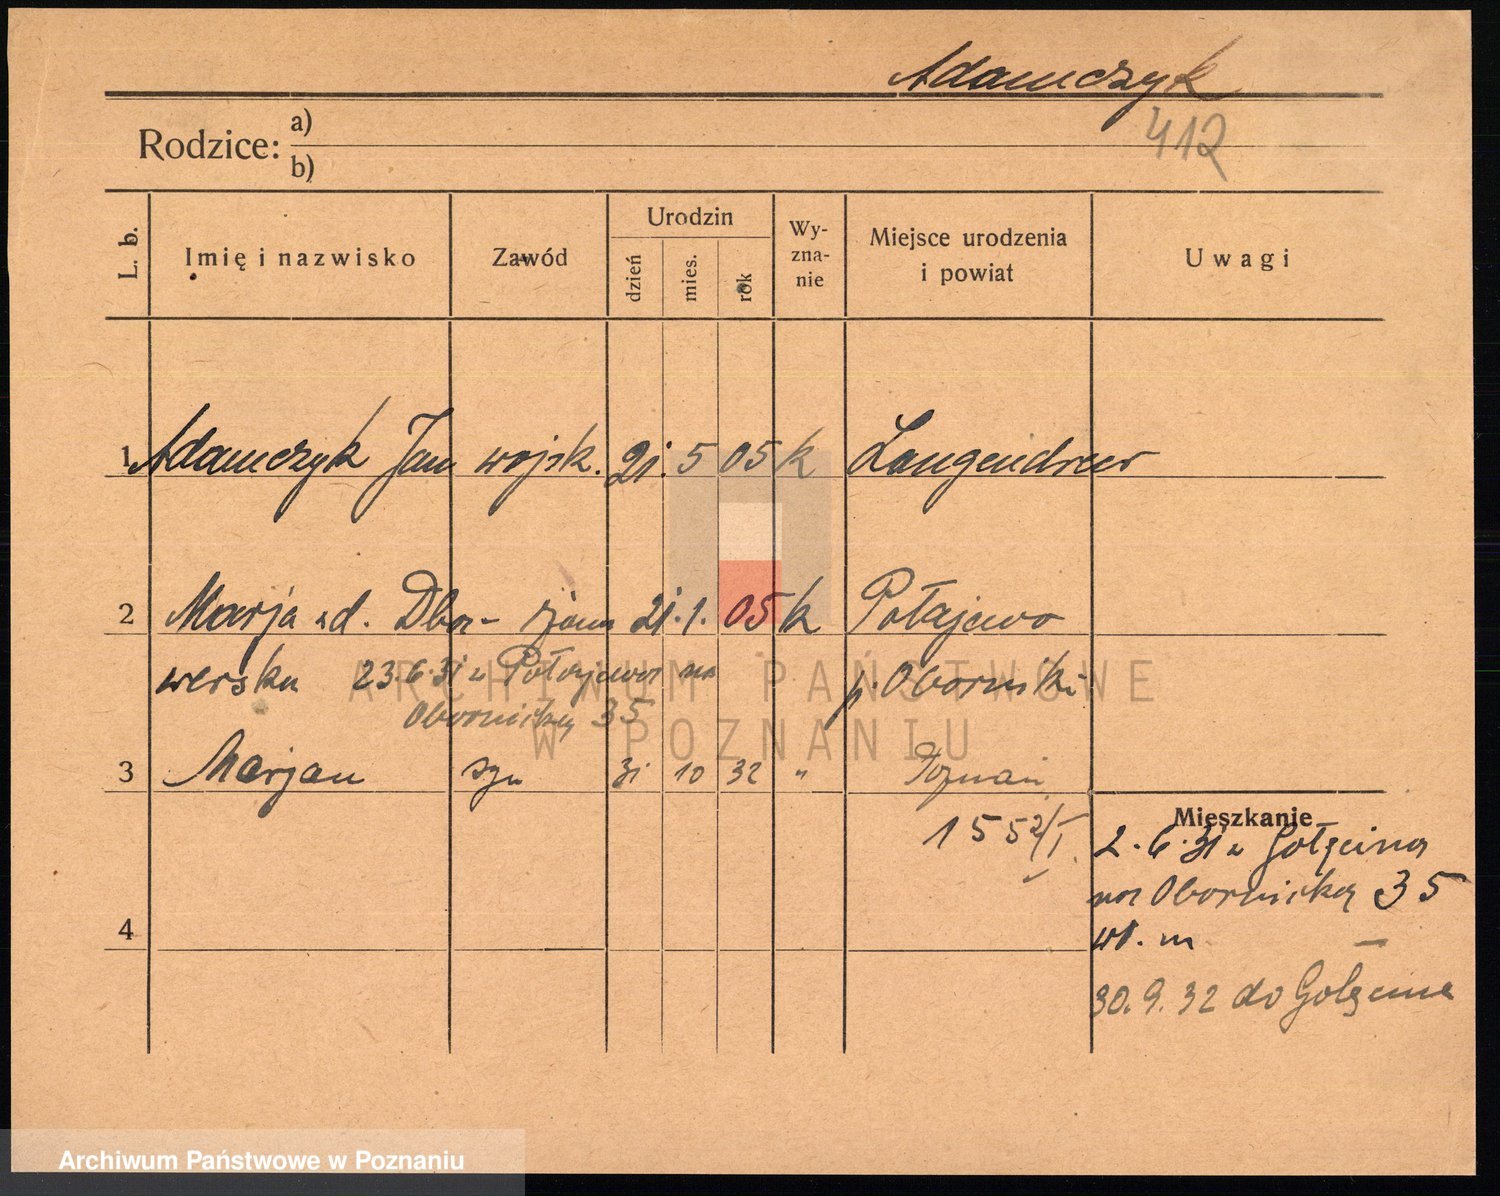 Adamczyk
412
Rodzice: a)
b)
L. b. Imię i nazwisko Zawód Urodzin dzień mies. rok Wy-zna-nie Miejsce urodzenia i powiat Uwagi
1 Adamczyk Jan wojsk. 21. 5 05 k Langendreer
2 Marja zd. Dbor- żona 21. 1. 05 k Połajewo
werska 23.6.31 z Połajewa na p. Oborniki
Obornicką 35
3 Marjan syn 31 10 32 " Poznań
1552/I.
Mieszkanie
2.6.31 z Gołęcina
na Obornicką 35
wł. m
4
30.9.32 do Golęcina
ARCHIWUM PAŃSTWOWE
W POZNANIU
Archiwum Państwowe w Poznaniu